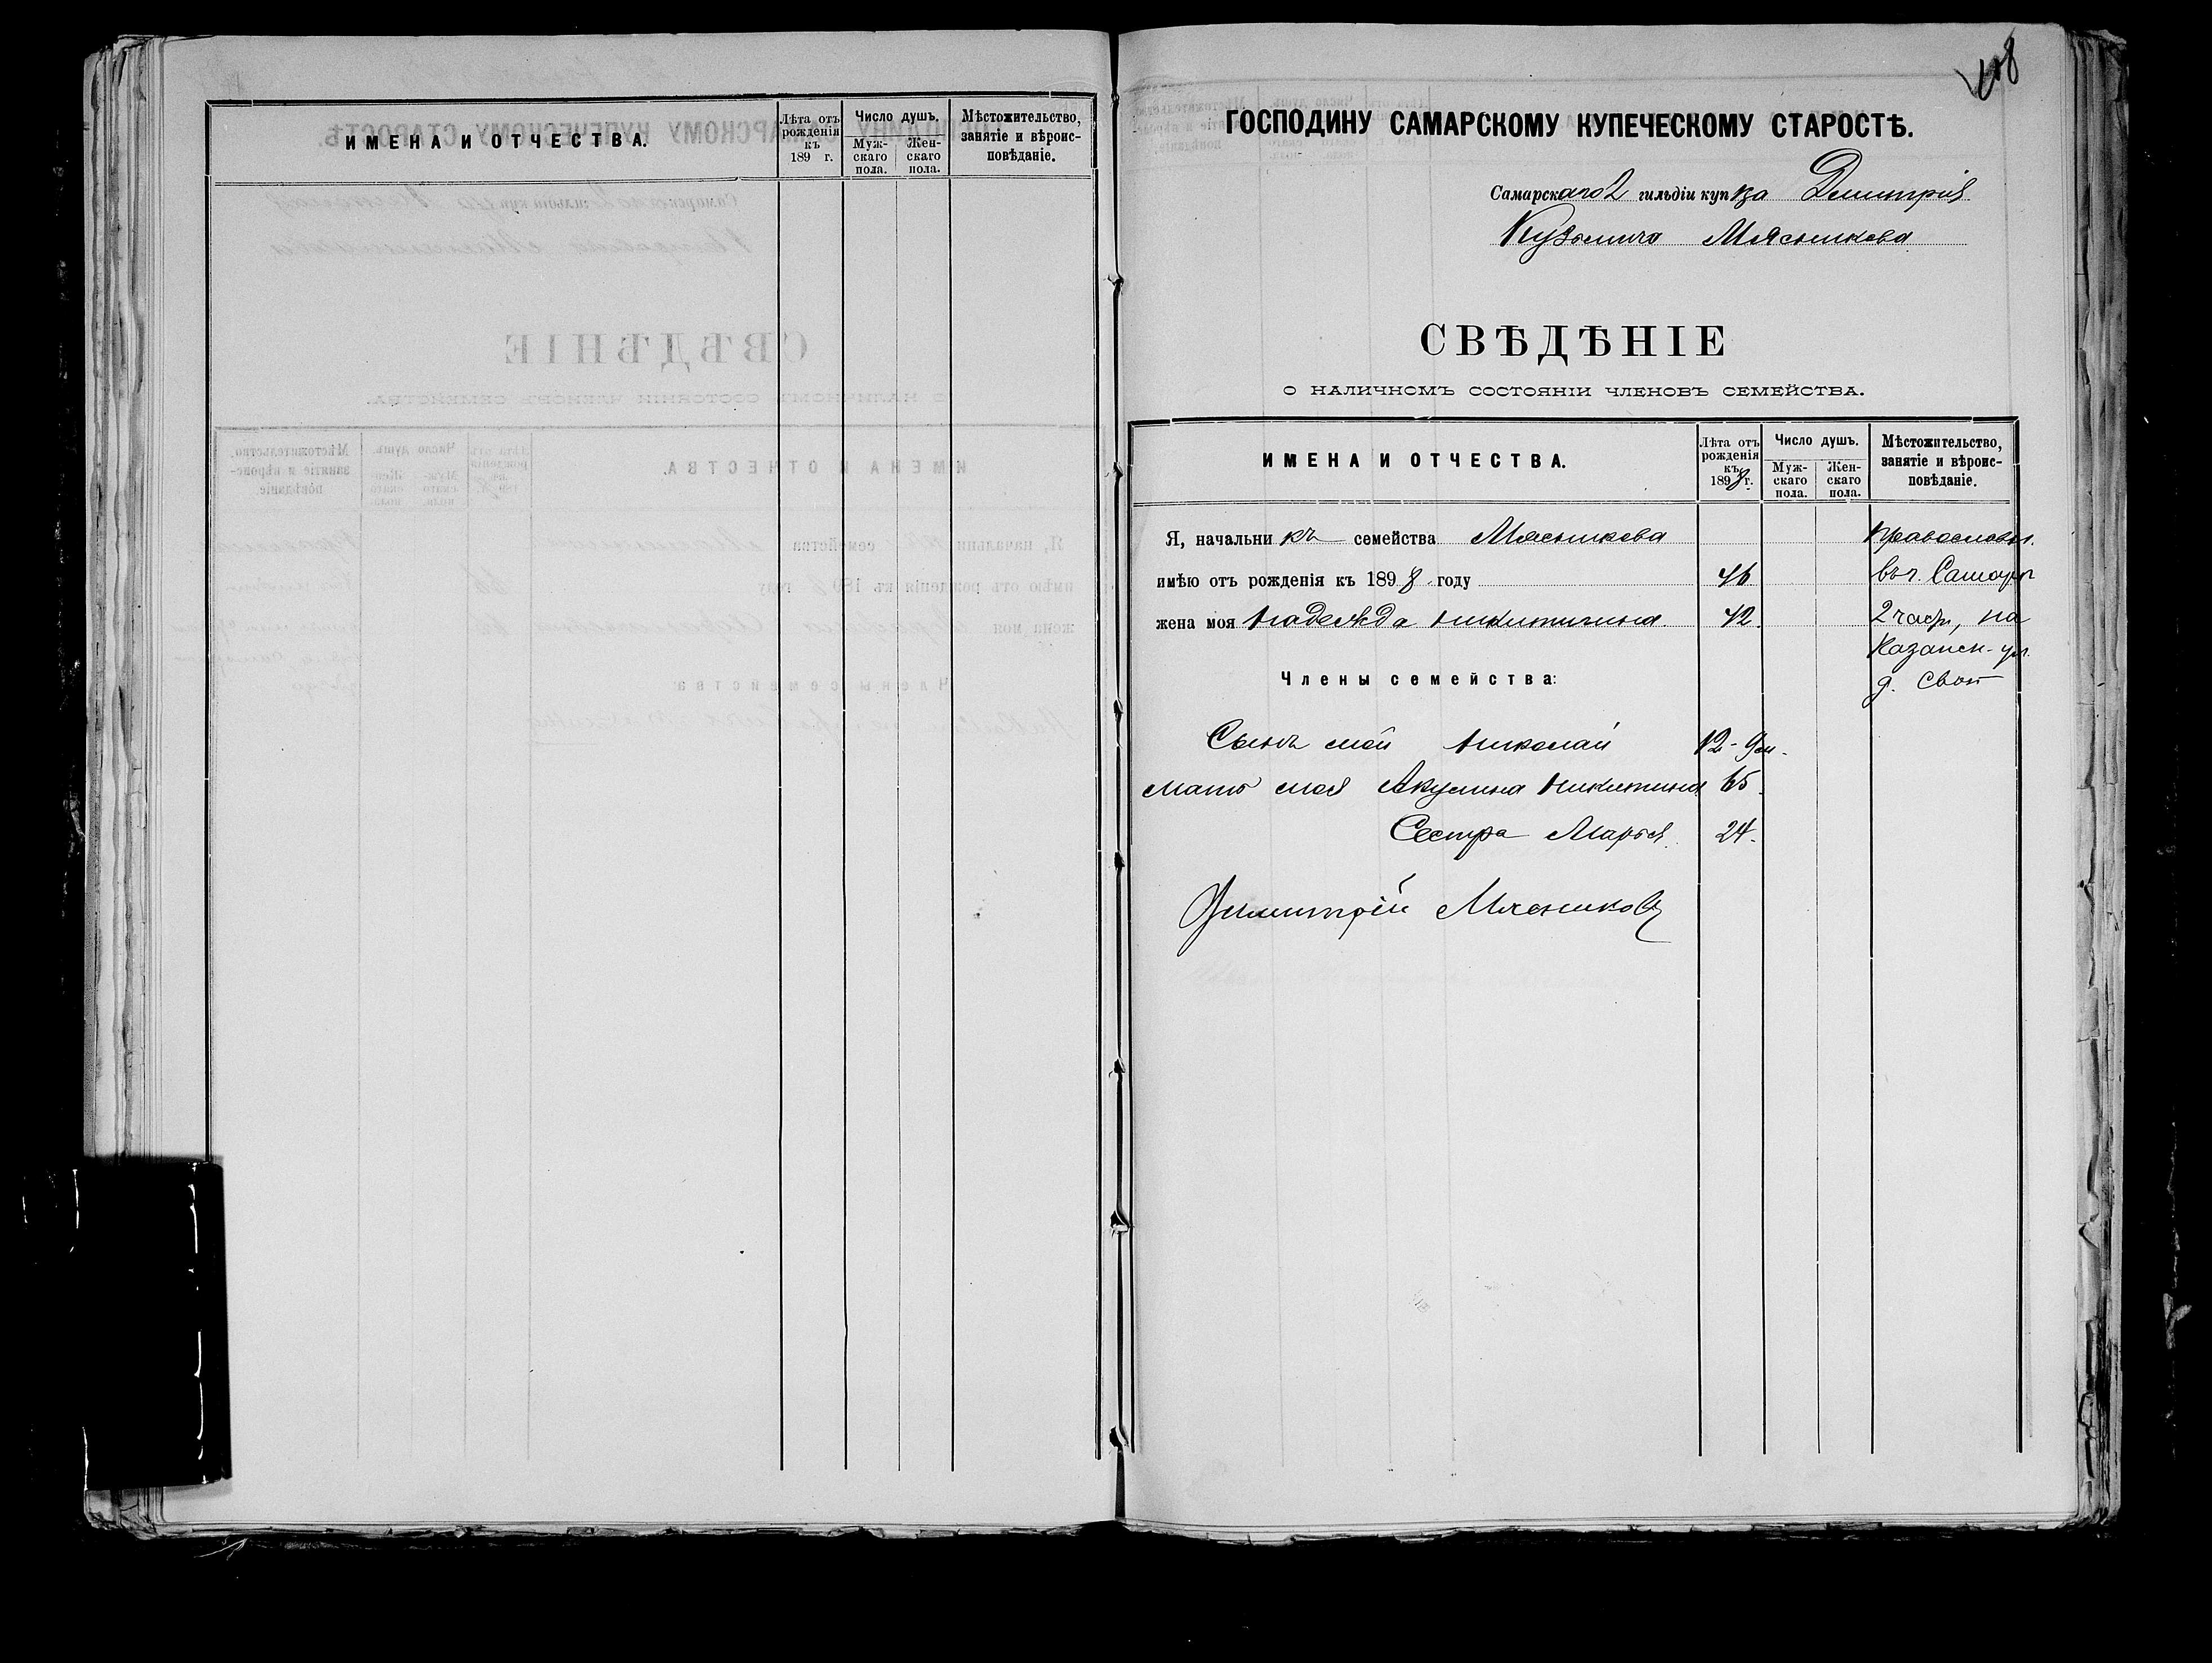 ИМЕНА И ОТЧЕСТВА.
Лѣта отъ рожденія къ 189 г.
Число душъ.
Мужскаго пола.
Женскаго пола.
Мѣстожительство, занятіе и вѣроисповѣданіе.
108
ГОСПОДИНУ САМАРСКОМУ КУПЕЧЕСКОМУ СТАРОСТѢ.
Самарскаго 2 гильдіи купца Дмитрія
Кузьмича Мясникова
СВѢДѢНІЕ
О НАЛИЧНОМЪ СОСТОЯНІИ ЧЛЕНОВЪ СЕМЕЙСТВА.
ИМЕНА И ОТЧЕСТВА.
Лѣта отъ рожденія къ 1898 г.
Число душъ.
Мужскаго пола.
Женскаго пола.
Мѣстожительство, занятіе и вѣроисповѣданіе.
Я, начальникъ семейства Мясникова Православн.
имѣю отъ рожденія къ 1898 году 46 въ г. Самарѣ
жена моя Надежда Никитична 42 2 части, на
Казанск. ул.
Члены семейства: д. свой
Сынъ мой Николай 12 - 9 м.
мать моя Акулина Никитина 65
Сестра Марья 24.
Димитрій Мясниковъ